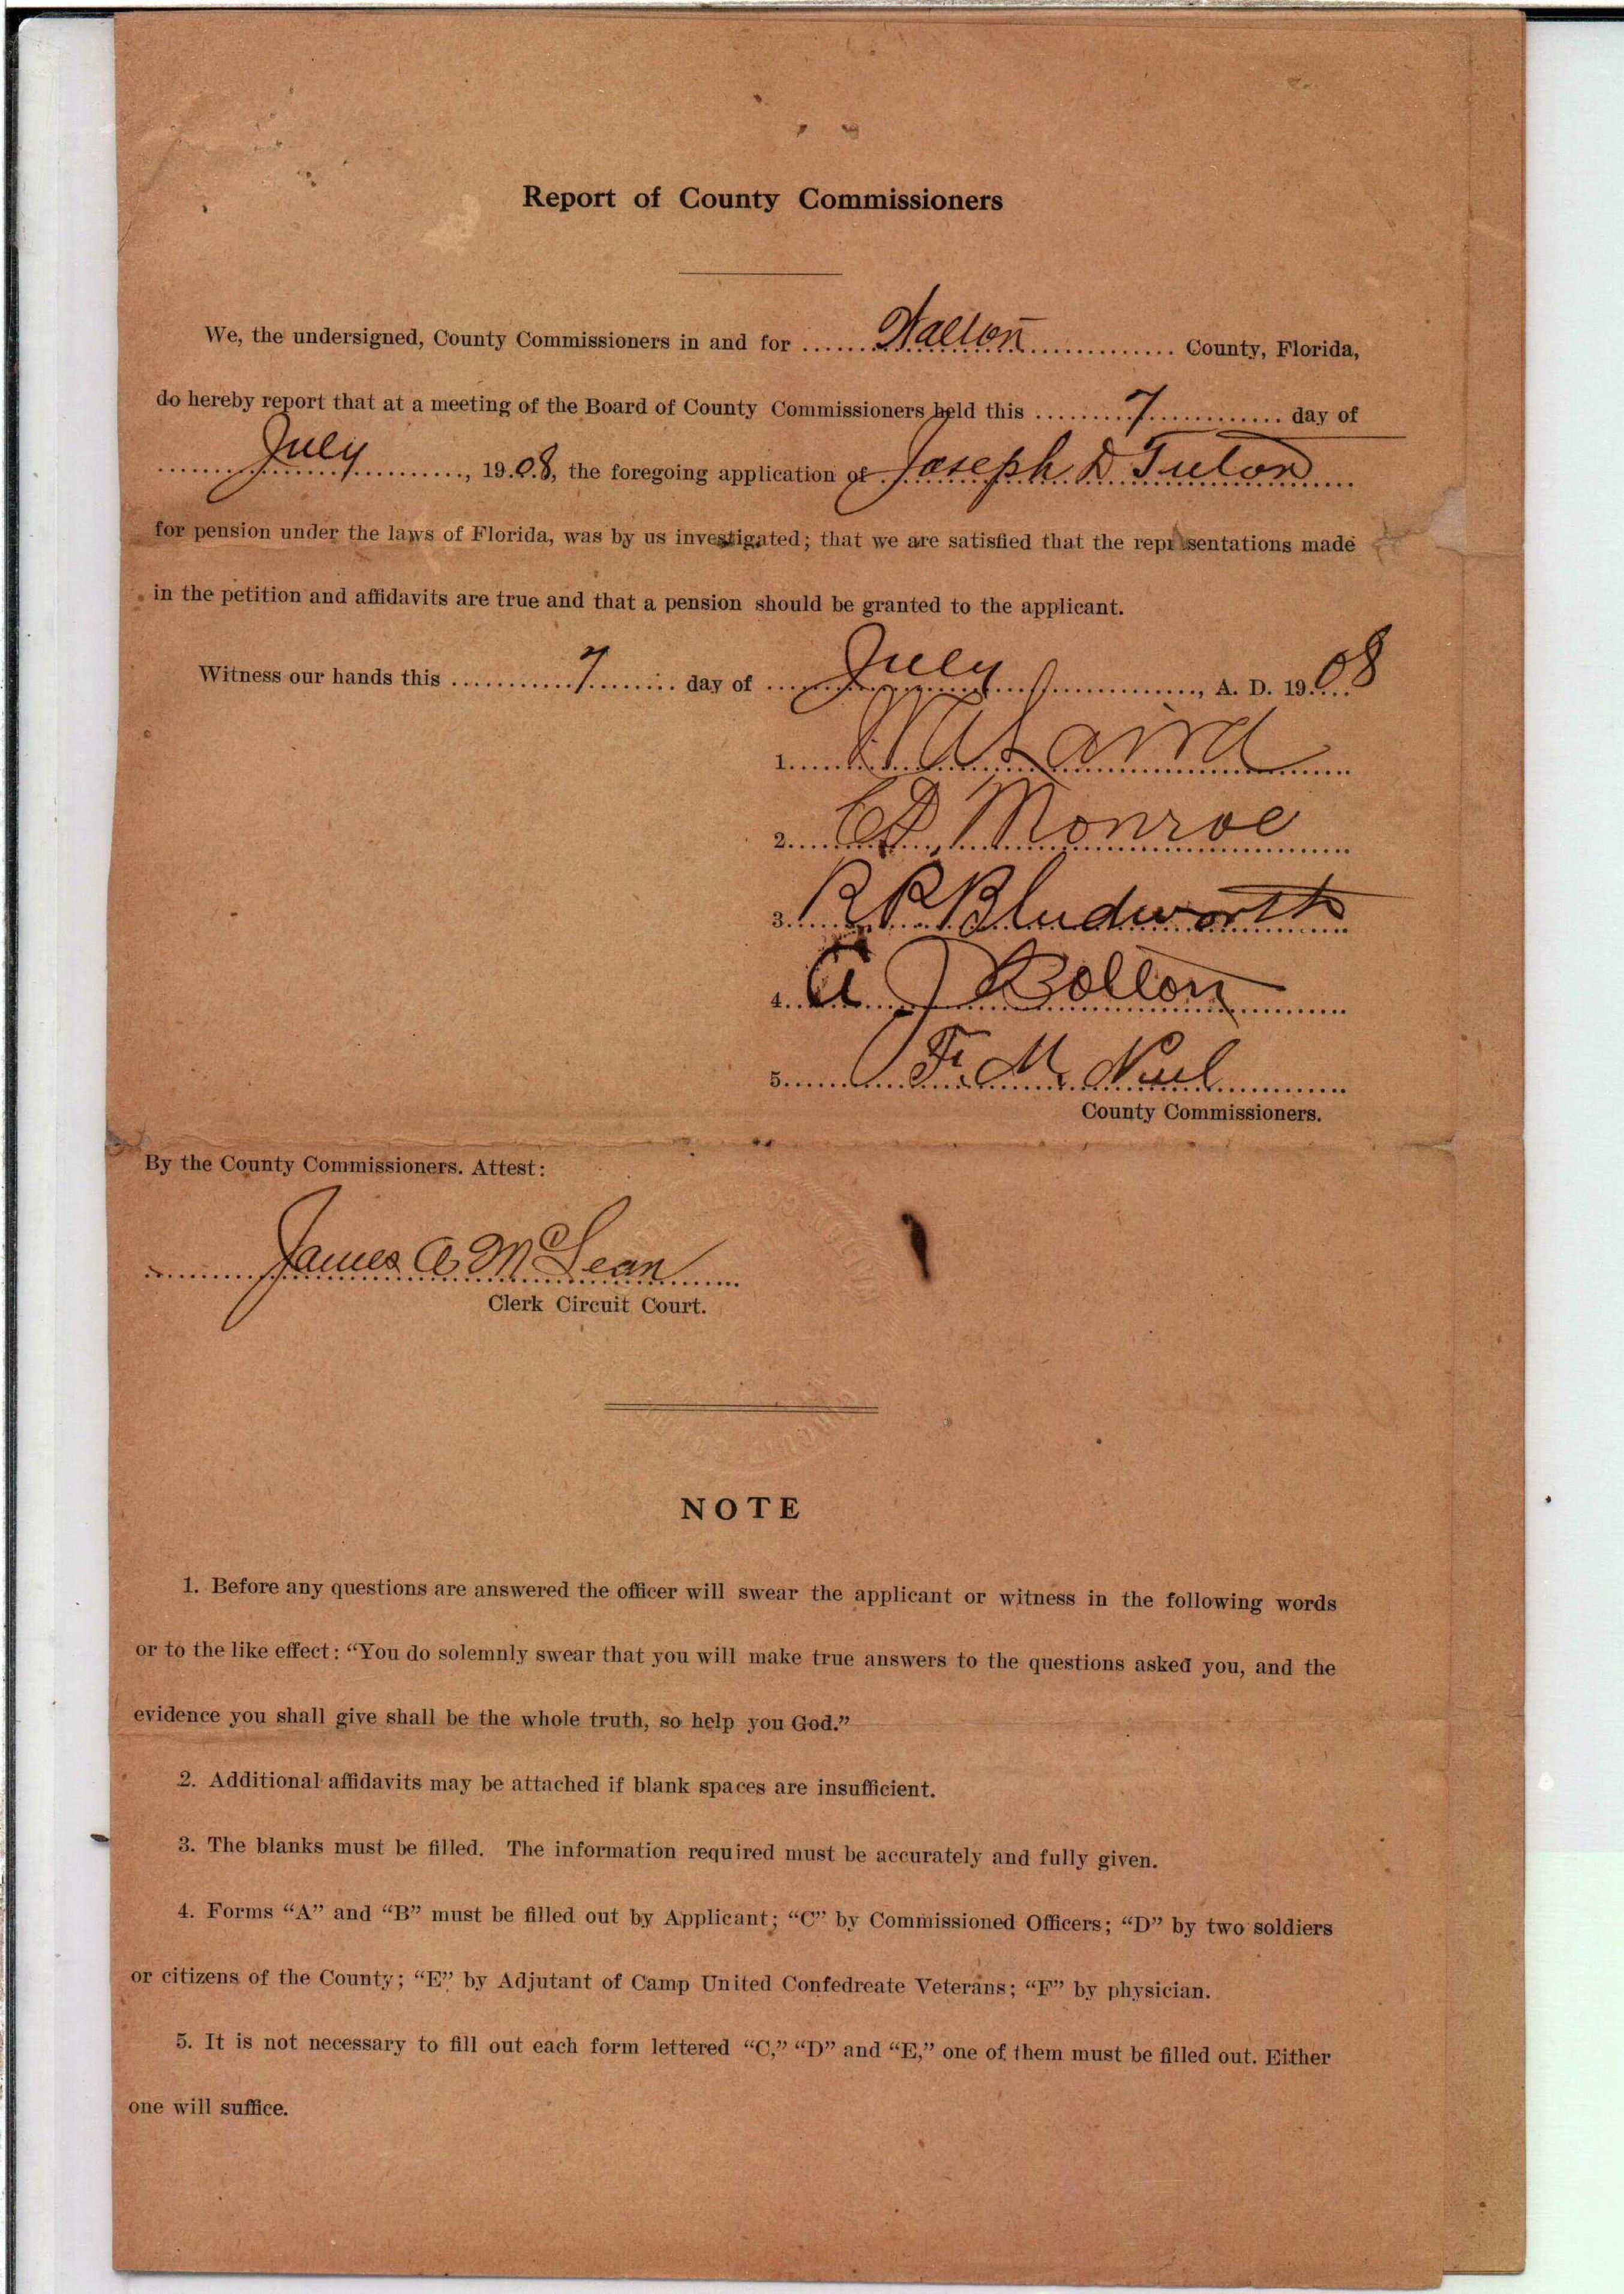 Report of County Commissioners
We, the undersigned, County Commissioners in and for ...... Walton ............... County, Florida,
do hereby report that at a meeting of the Board of County Commissioners held this ........ 7 ........... day of
...... July ..........., 1908, the foregoing application of Joseph D Tuton
for pension under the laws of Florida, was by us investigated; that we are satisfied that the representations made
in the petition and affidavits are true and that a pension should be granted to the applicant.
Witness our hands this ........... 7 ........ day of ...... July ..............., A. D. 1908
1. Laird
2. Monroe
3. R R Bludworth
4. A J Bolton
5. F. M. Neel
County Commissioners.
By the County Commissioners. Attest:
James A McLean
Clerk Circuit Court.
NOTE
1. Before any questions are answered the officer will swear the applicant or witness in the following words
or to the like effect: “You do solemnly swear that you will make true answers to the questions asked you, and the
evidence you shall give shall be the whole truth, so help you God.”
2. Additional affidavits may be attached if blank spaces are insufficient.
3. The blanks must be filled. The information required must be accurately and fully given.
4. Forms “A” and “B” must be filled out by Applicant; “C” by Commissioned Officers; “D” by two soldiers
or citizens of the County; “E” by Adjutant of Camp United Confedreate Veterans; “F” by physician.
5. It is not necessary to fill out each form lettered “C,” “D” and “E,” one of them must be filled out. Either
one will suffice.